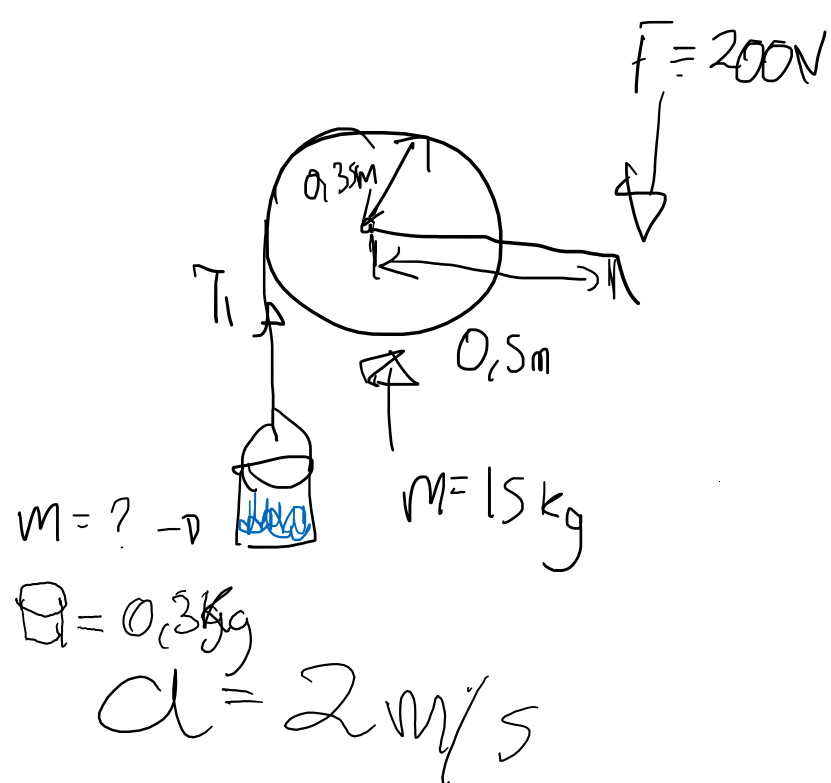 F = 200N
0,35m
T1
0,5m
m = ?
m = 15kg
= 0,3kg
a = 2 m/s